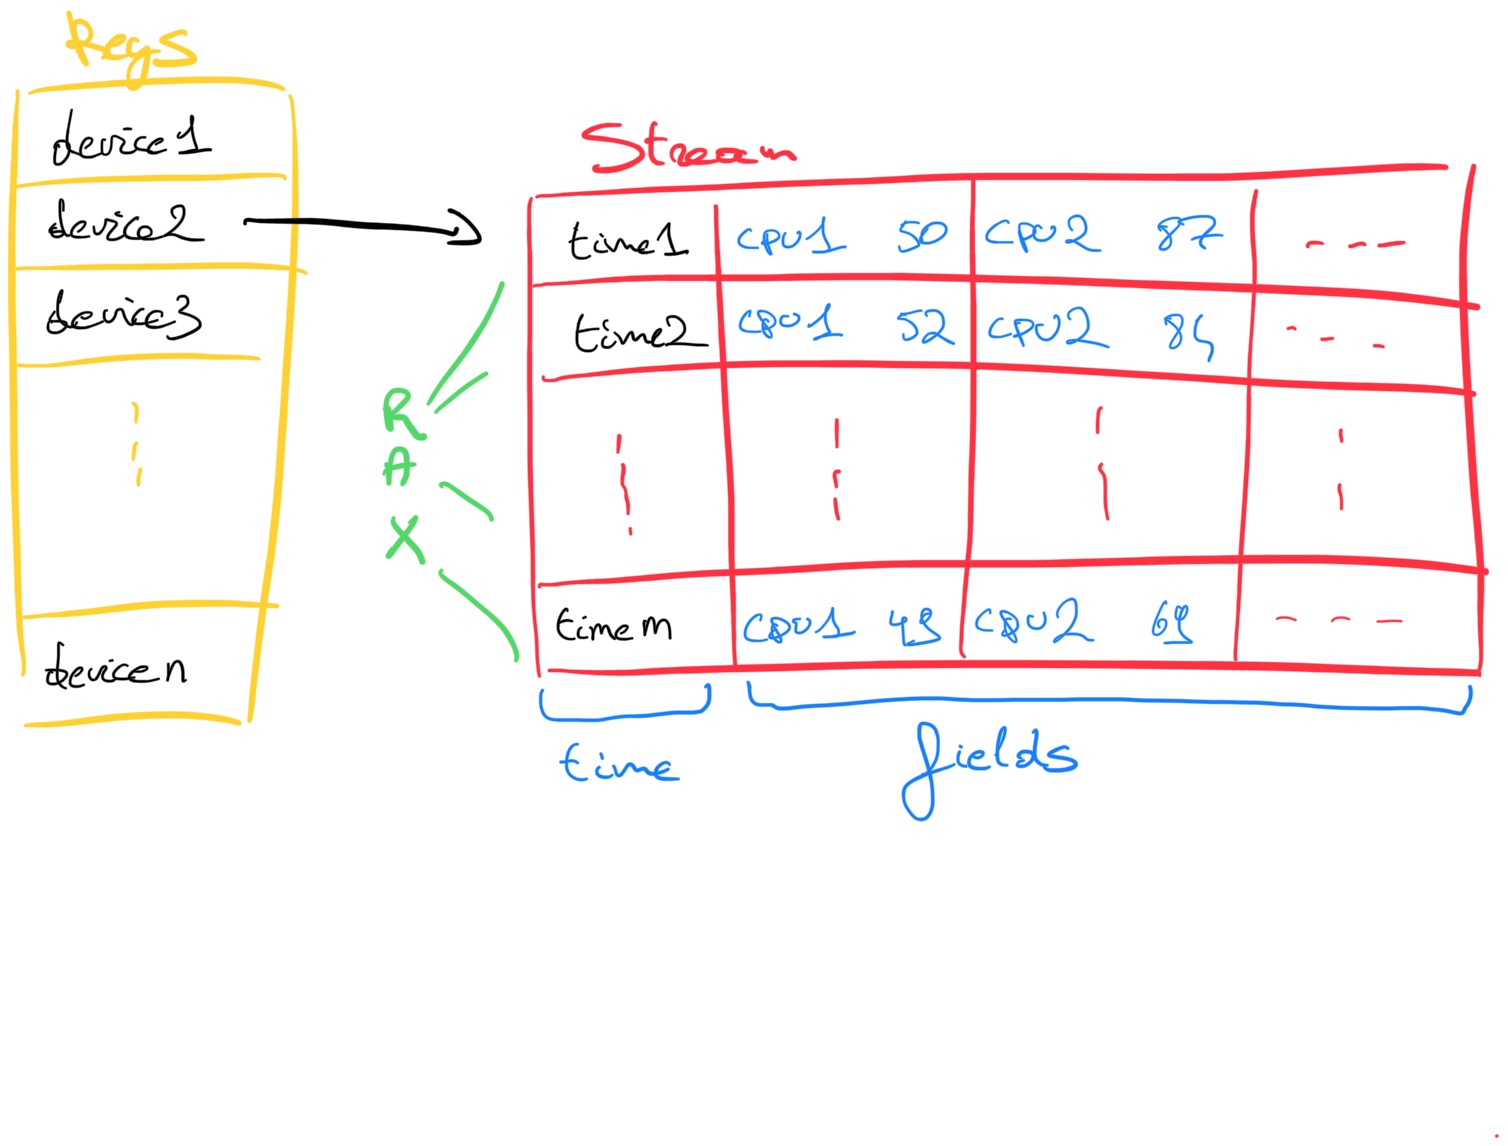 Keys
device1
device2
device3
device n
R
A
X
Stream
time1 CPU1 50 CPU2 87
time2 CPU1 52 CPU2 84
time m CPU1 49 CPU2 69
time
fields